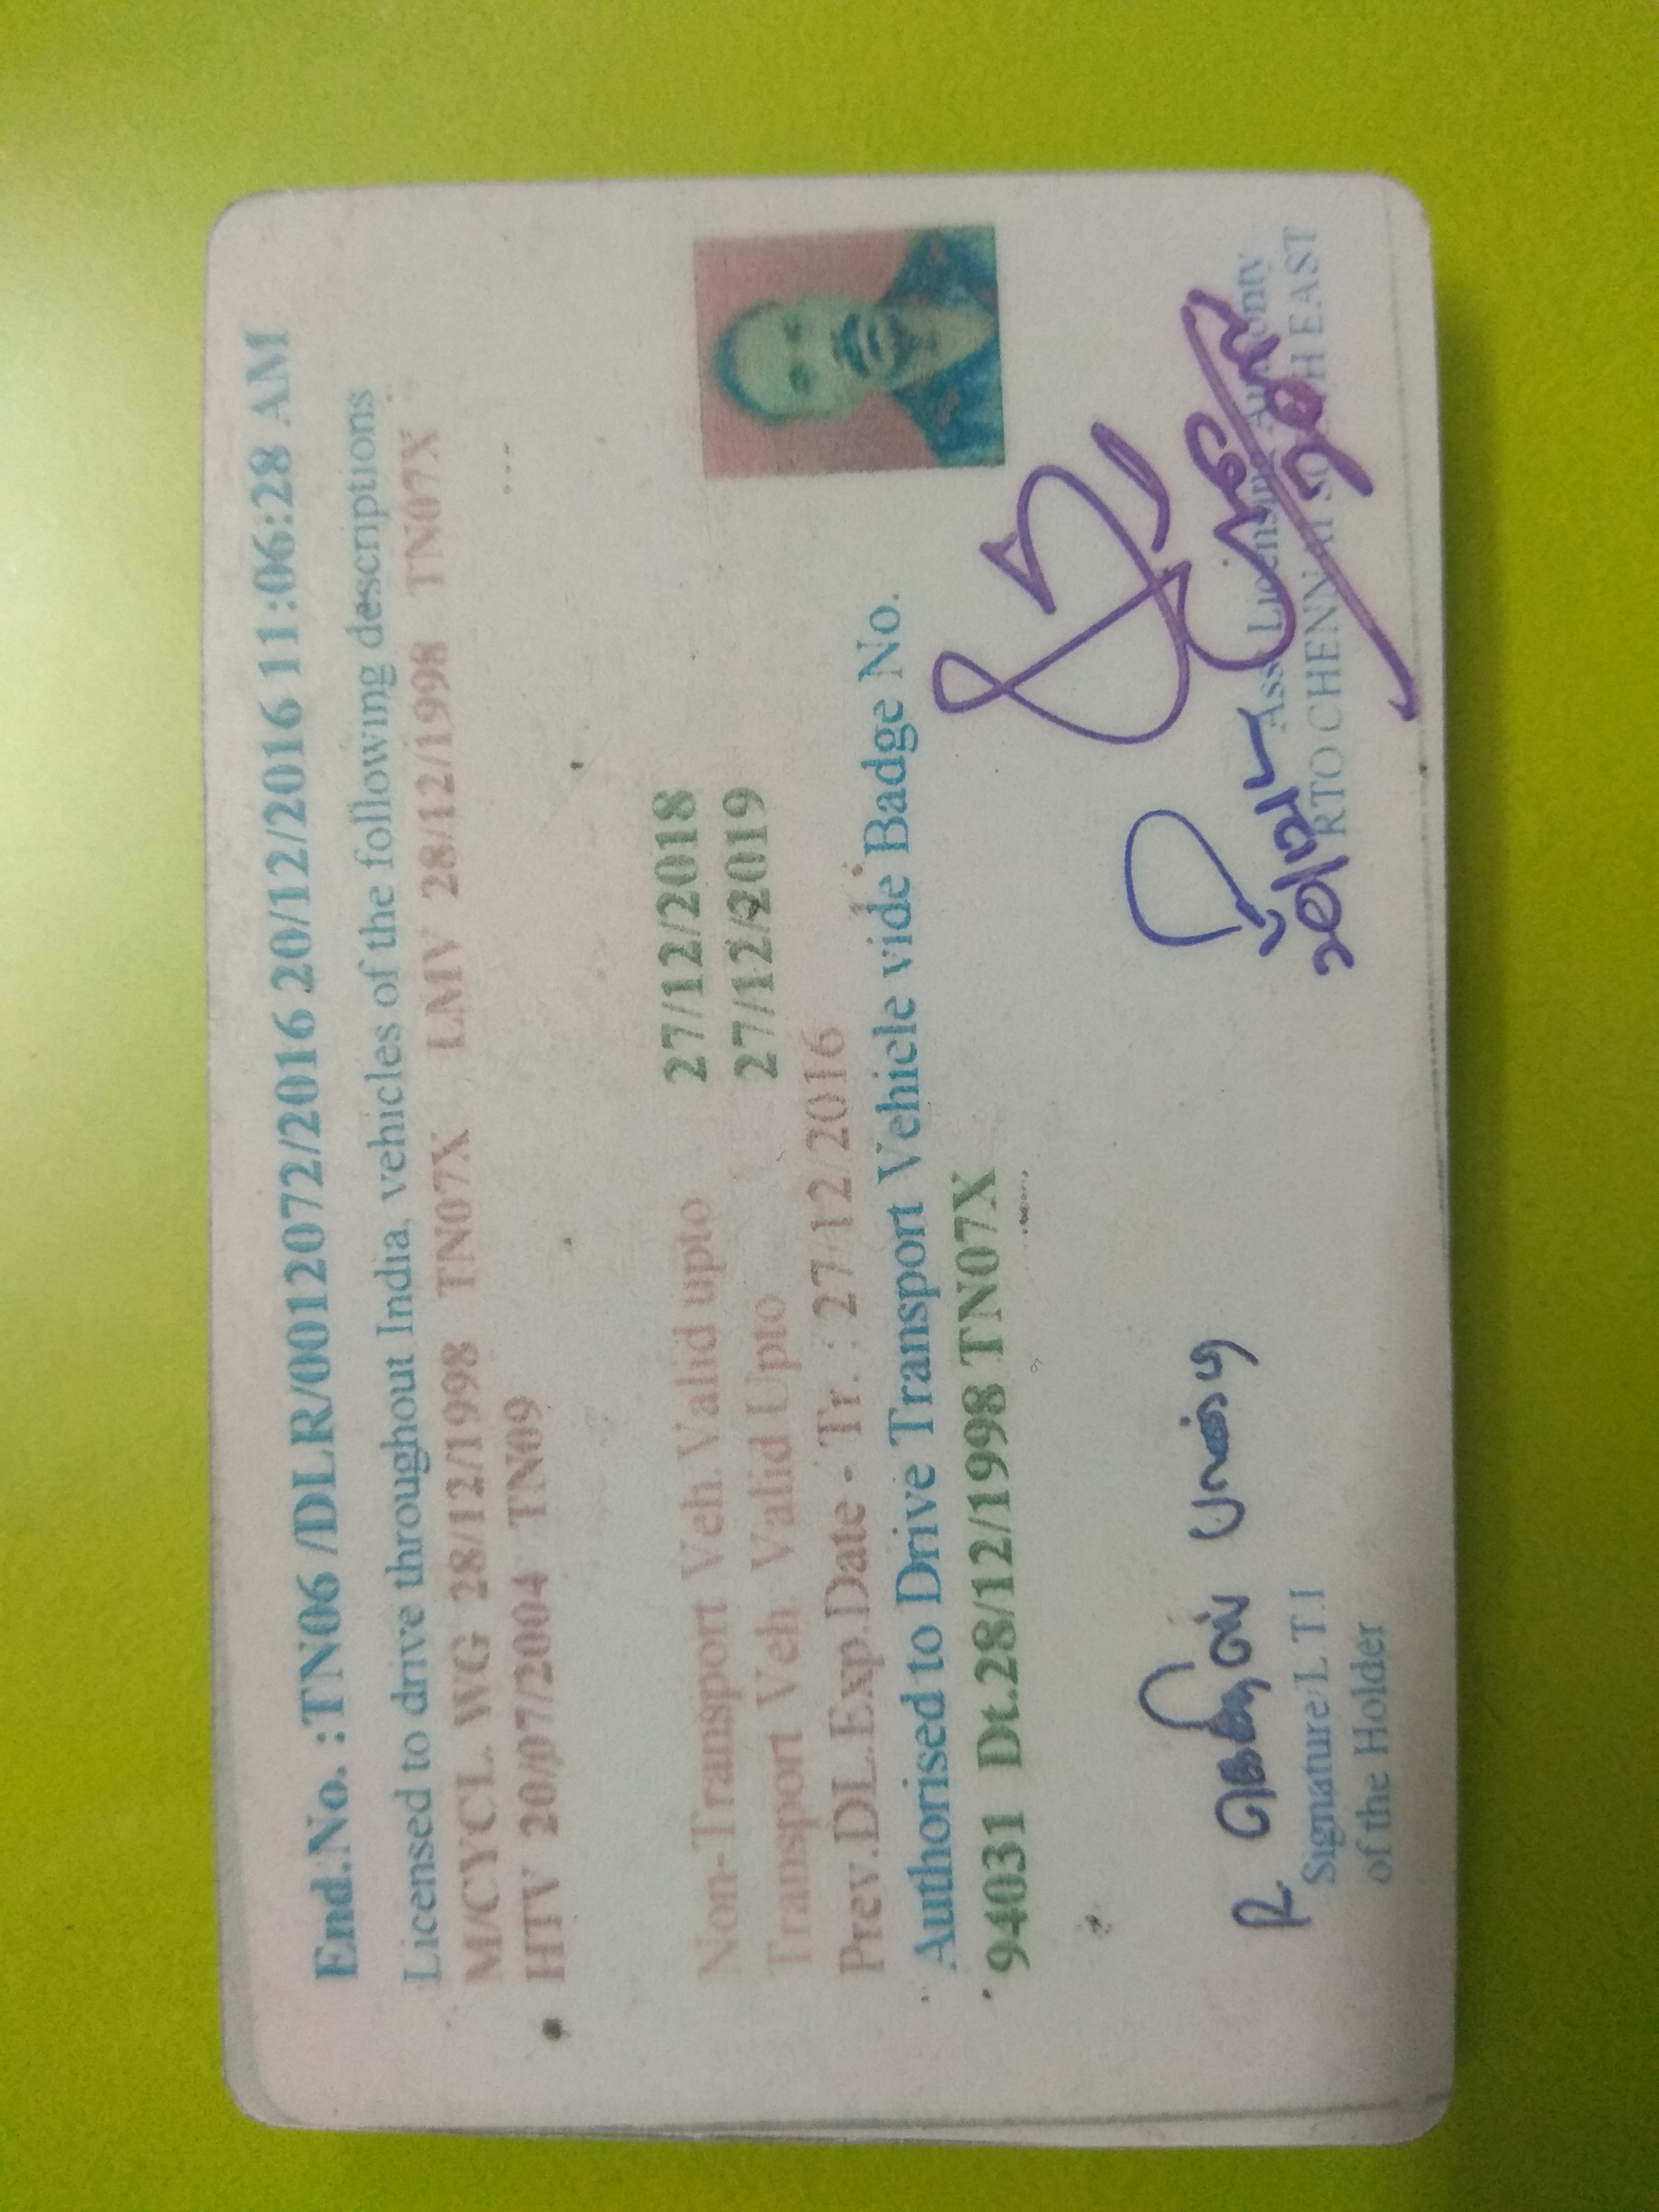 End.No. :TN06 /DLR/0012072/2016 20/12/2016 11:06:28 AM
Licensed to drive throughout India, vehicles of the following descriptions
M/CYCL. WG 28/12/1998 TN07X LMV 28/12/1998 TN07X
HTV 20/07/2004 TN09
Non-Transport Veh.Valid upto 27/12/2018
Transport Veh. Valid Upto 27/12/2019
Prev.DL.Exp.Date - Tr. : 27/12/2016
Authorised to Drive Transport Vehicle vide Badge No.
94031 Dt.28/12/1998 TN07X
R
Signature/L.T.I
of the Holder
Asst Licensing Authority
RTO CHENNAI SOUTH EAST